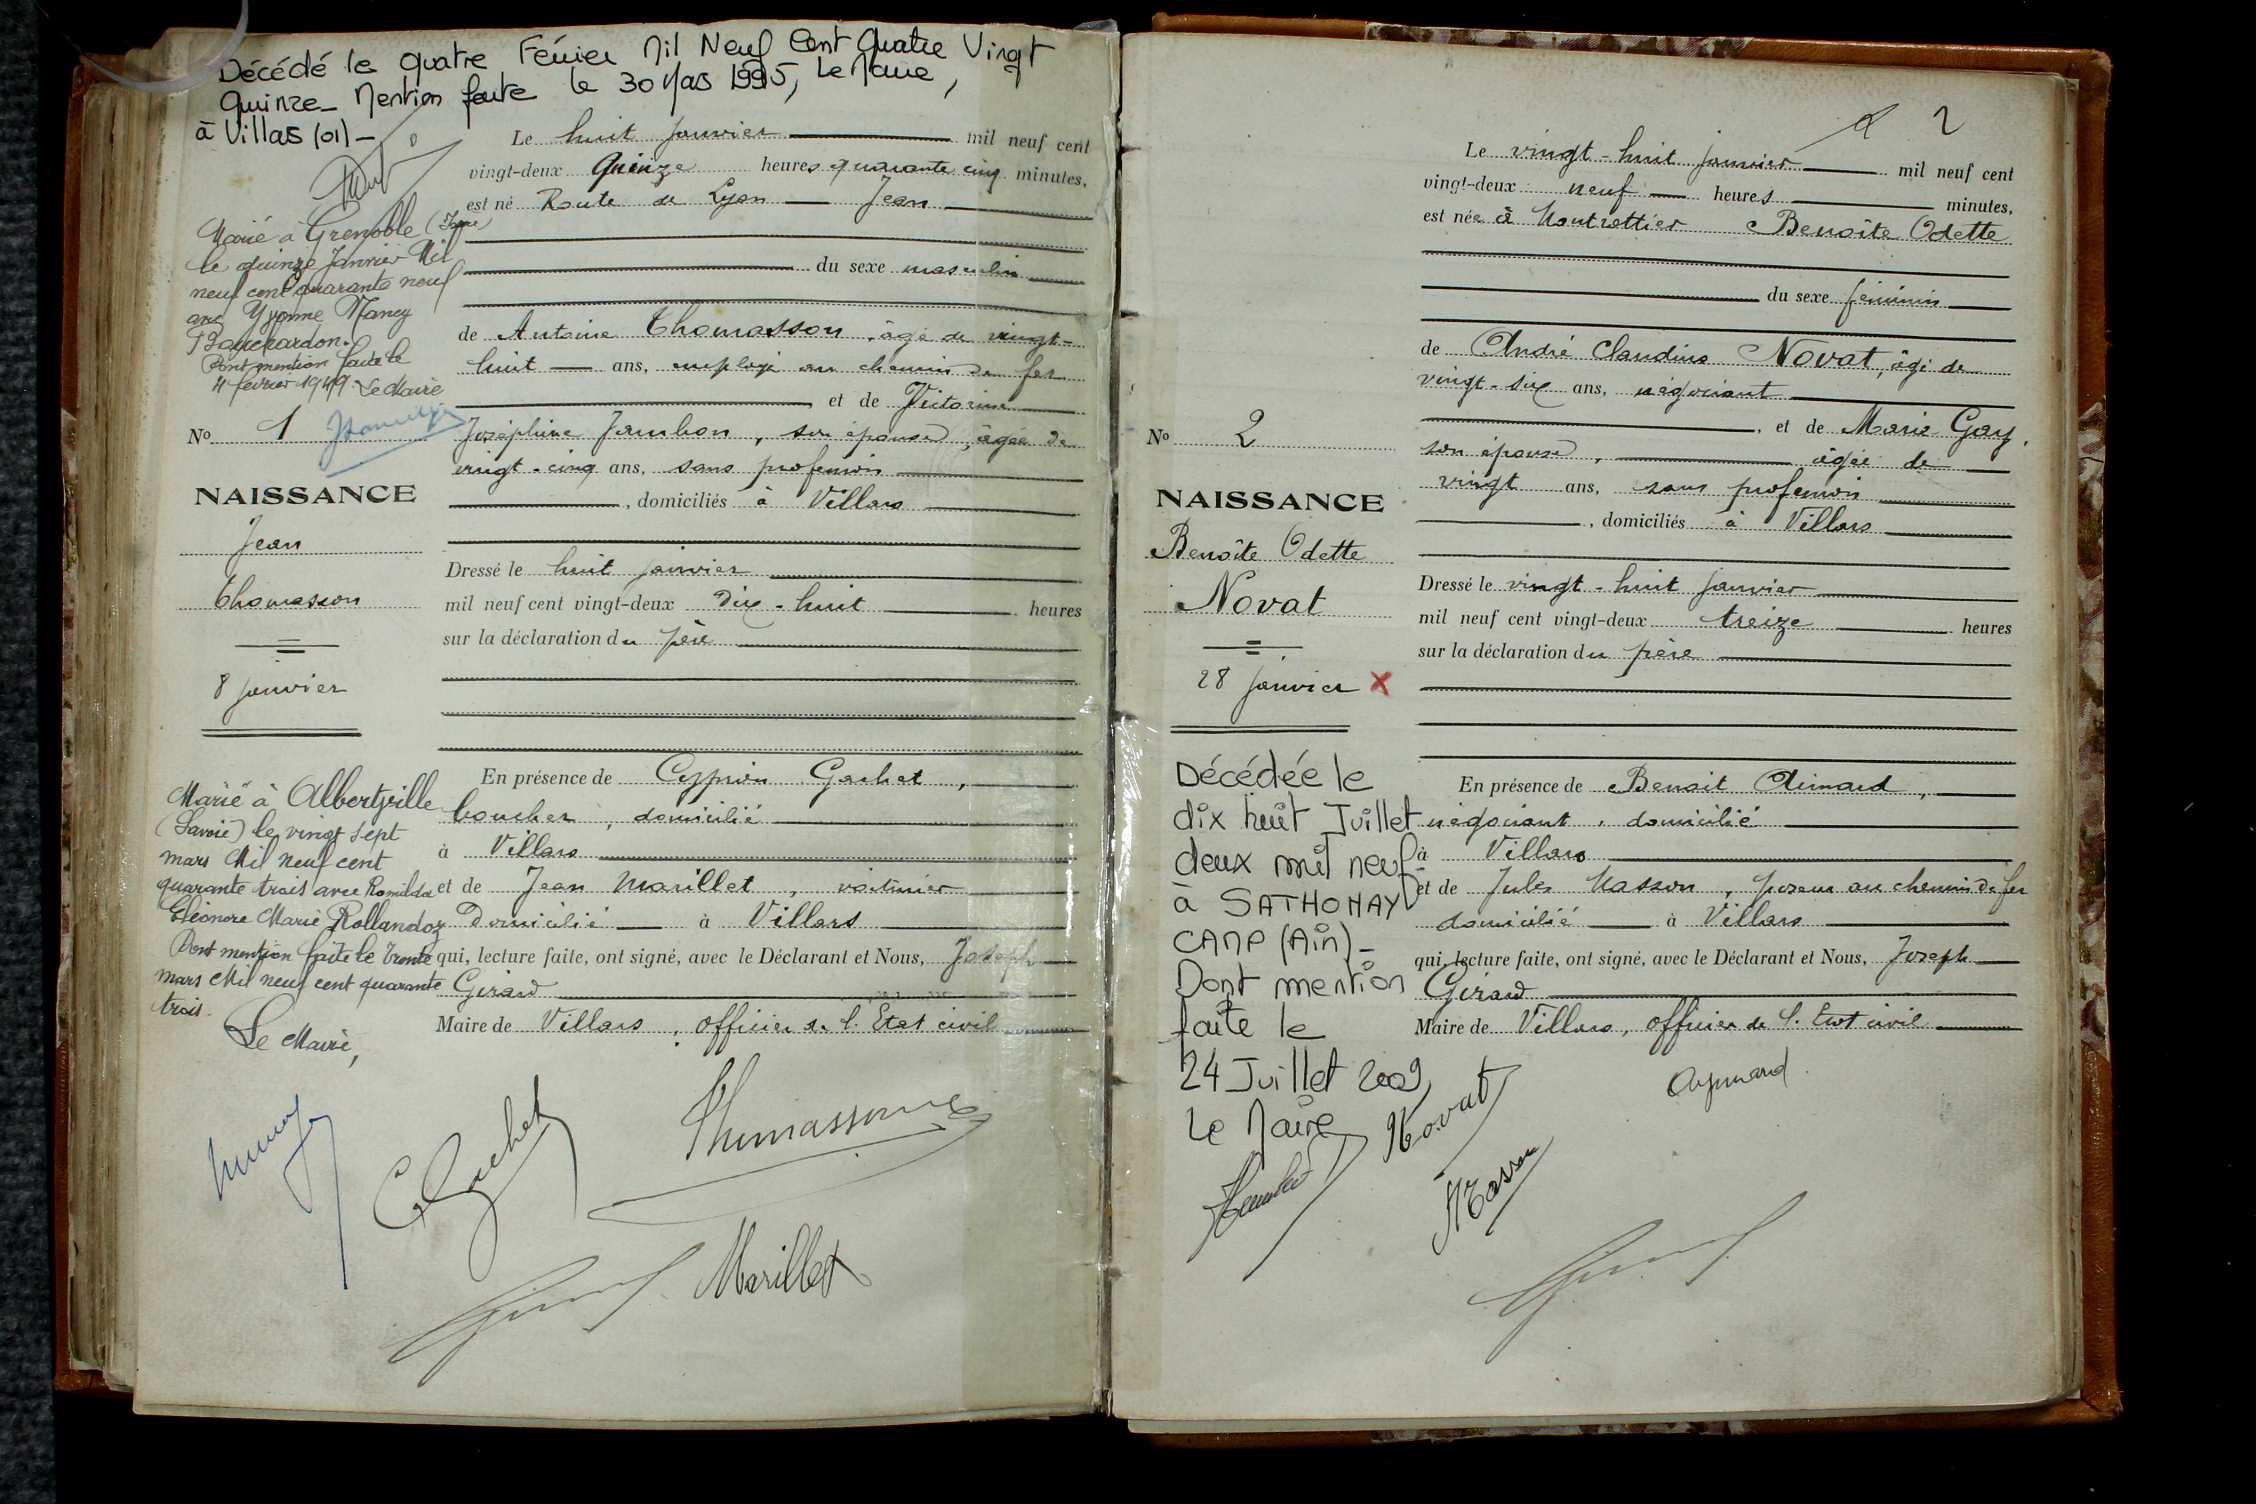 Décédé le quatre Février Mil Neuf Cent Quatre Vingt
Quinze - Mention faite le 30 Mars 1995, Le Maire,
à Villars (01) -
Marié à Grenoble (Isère)
le quinze Janvier Mil
neuf cent quarante neuf
avec Yvonne Nancy
Bouchardon.
Dont mention faite le
4 février 1949. Le Maire
No 1
NAISSANCE
Jean
Thomasson
8 janvier
Marié à Albertville
(Savoie) le vingt sept
mars Mil neuf cent
quarante trois avec Romilda
Eléonore Marie Rollandoz
Dont mention faite le trente
mars Mil neuf cent quarante
trois.
Le Maire,
Le huit janvier mil neuf cent
vingt-deux Quinze heures quarante cinq minutes,
est né Route de Lyon Jean
du sexe masculin
de Antoine Thomasson, âgé de vingt-
huit ans, employé au chemin de fer
et de Victorine
Joséphine Jambon, son épouse, âgée de
vingt-cinq ans, sans profession
, domiciliés à Villars
Dressé le huit janvier
mil neuf cent vingt-deux Dix-huit heures
sur la déclaration du père
En présence de Cyprien Gachet,
boucher, domicilié
à Villars
et de Jean Marillet, voiturier
Domicilié à Villars
qui, lecture faite, ont signé, avec le Déclarant et Nous, Joseph
Girard
Maire de Villars, officier de l'Etat civil
C Gachet
Thomasson
Marillet
2
No 2
NAISSANCE
Benoîte Odette
Novat
28 janvier X
Décédée le
dix huit Juillet
deux mil neuf
à SATHONAY
CAMP (Ain) -
Dont mention
faite le
24 Juillet 2009
Le Maire
Le vingt-huit janvier mil neuf cent
vingt-deux neuf heures minutes,
est née à Montrottier Benoîte Odette
du sexe féminin
de André Claudius Novat, âgé de
vingt-six ans, négociant
, et de Marie Gay,
son épouse, âgée de
vingt ans, sans profession
, domiciliés à Villars
Dressé le vingt-huit janvier
mil neuf cent vingt-deux treize heures
sur la déclaration du père
En présence de Benoit Aimard,
négociant, domicilié
à Villars
et de Jules Masson, poseur au chemin de fer
domicilié à Villars
qui, lecture faite, ont signé, avec le Déclarant et Nous, Joseph
Girard
Maire de Villars, officier de l'Etat civil
Novat
Aymard
Masson